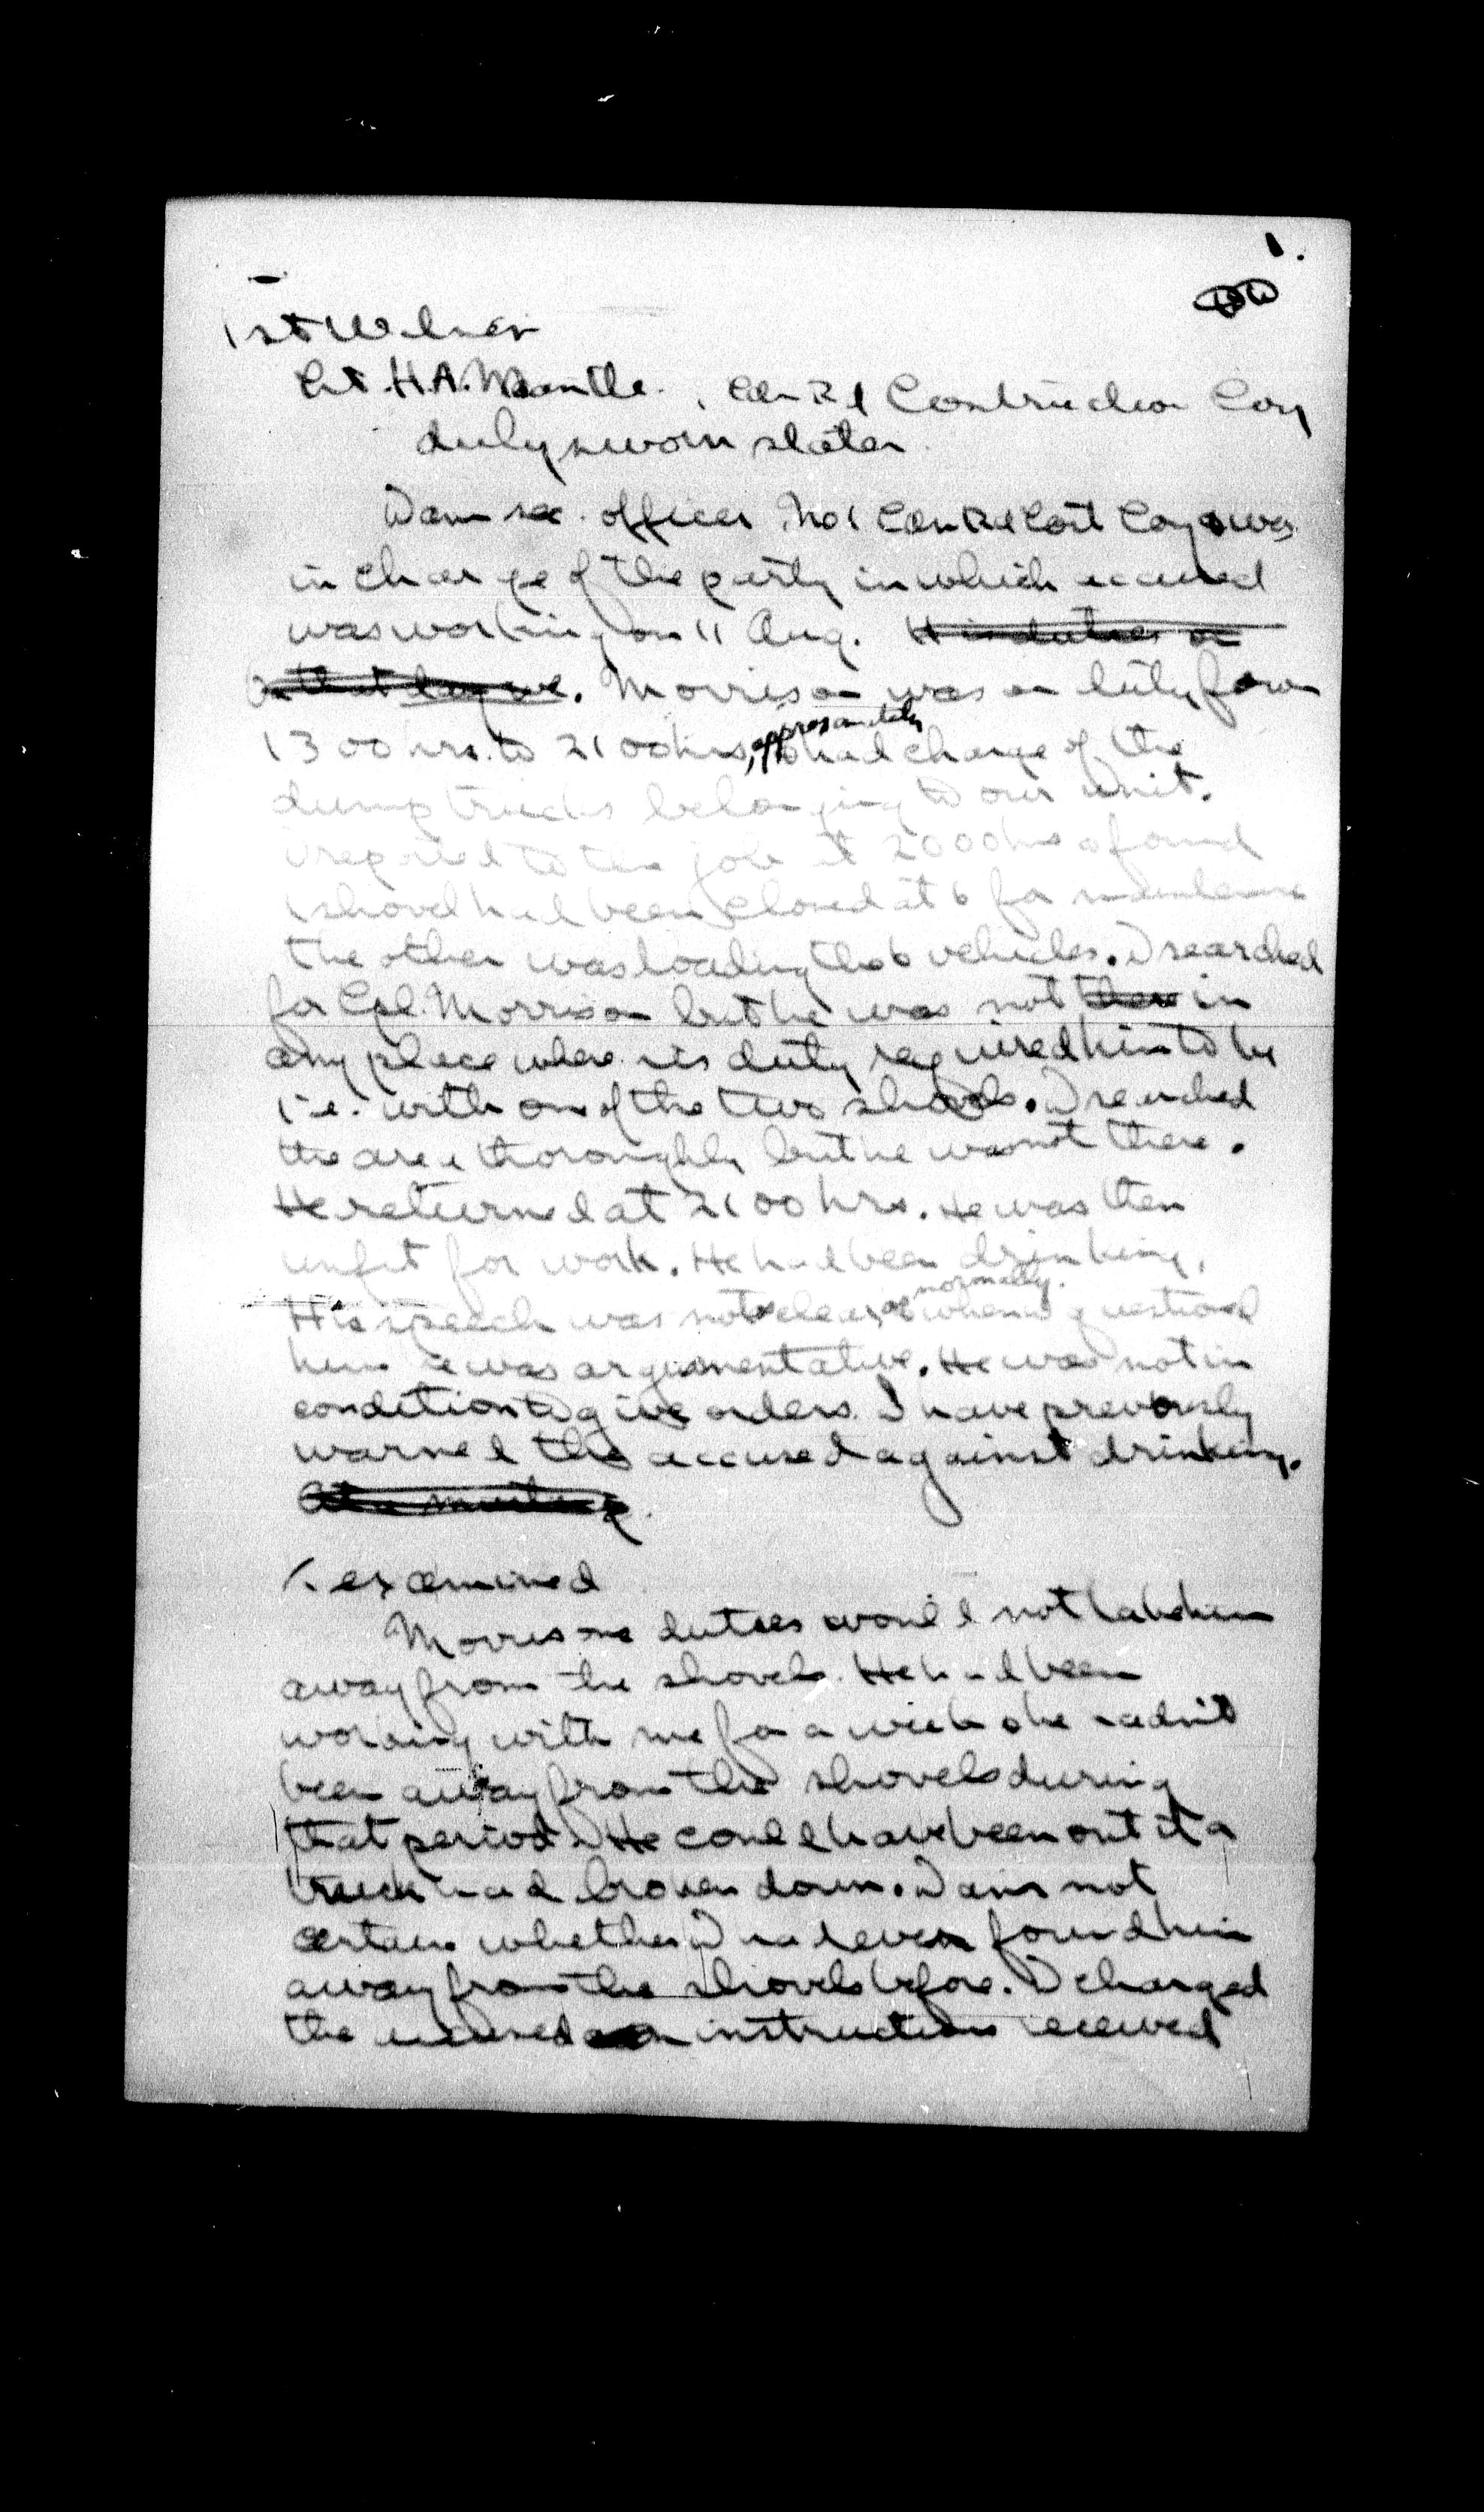 1.
1st Witness
Lt. H.A. Mantle, Cdn Rd Construction Coy
duly sworn states
I am sec. officer No 1 Cdn Rd Cost Coy & was
in charge of the party in which accused
was working on 11 Aug. His duties on
on that day were. Morrison was on duty from
1300 hrs. to 2100 hrs, approximately & had charge of the
dump trucks belonging to our unit.
I reported to the job at 2000 hrs & found
1 shovel had been closed at 6 for maintenance
the other was loading the 6 vehicles. I searched
for Cpl. Morrison but he was not there in
any place where his duty required him to be
i.e. with one of the two shovels. I searched
the area thoroughly but he was not there.
He returned at 2100 hrs. He was then
unfit for work. He had been drinking.
His speech was not clear, as normally. & when I questioned
him he was argumentative. He was not in
condition to give orders. I have previously
warned the accused against drinking.
At a meeting.
X examined
Morrisons duties would not take him
away from the shovels. He had been
working with me for a week & he hadn't
been away from the shovels during
that period. He could have been out if a
truck had broken down. I am not
certain whether I had ever found him
away from the shovels before. I charged
the accused on instructions received